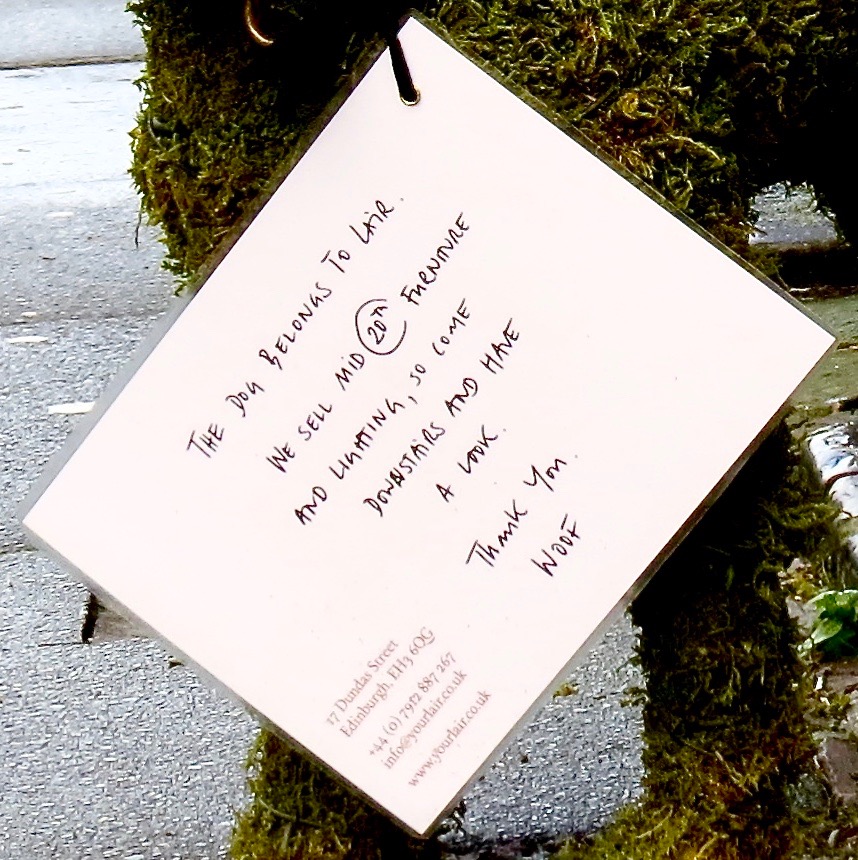 THE DOG BELONGS TO LAIR.
WE SELL MID 20TH FURNITURE
AND LIGHTING, SO COME
DOWNSTAIRS AND HAVE
A LOOK.
Thank You.
WOOF
17 Dundas Street
Edinburgh, EH3 6QG
+44 (0) 7912 887 267
info@yourlair.co.uk
www.yourlair.co.uk